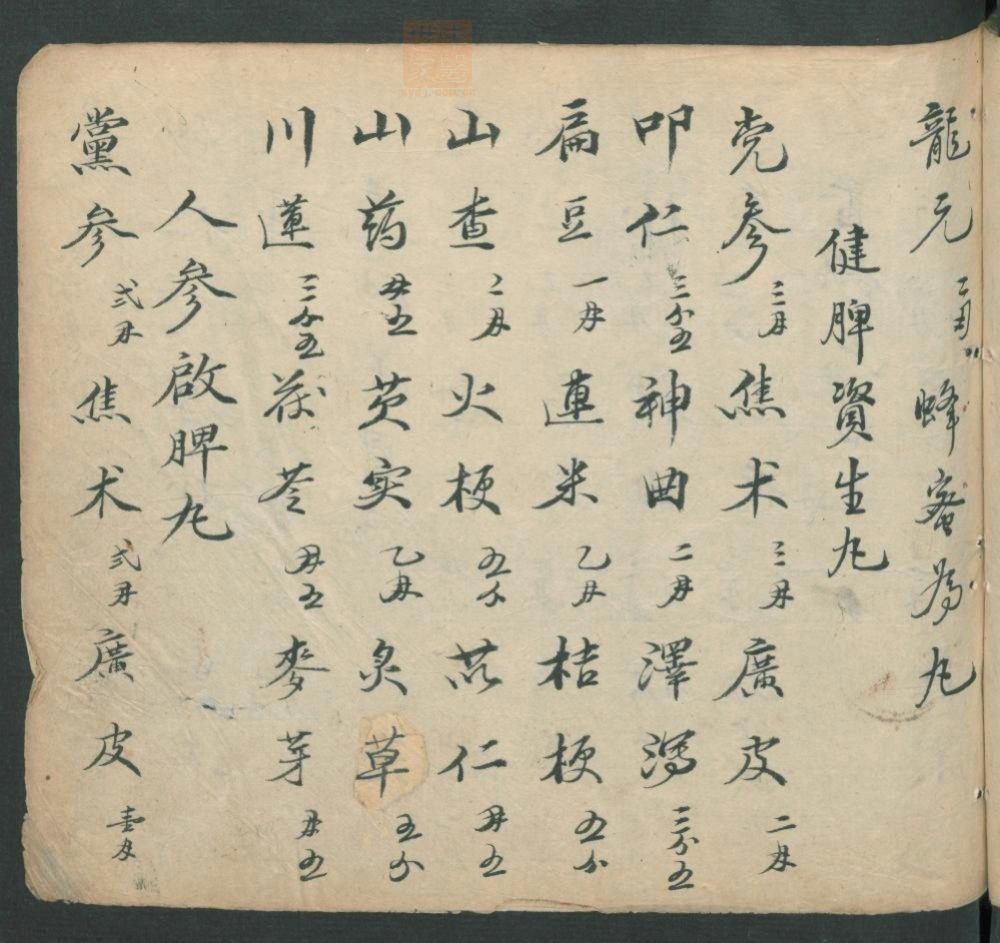 龍元二两蜂蜜為丸
健脾資生丸
党參三两焦术三两廣皮二两
叩仁三分五神曲二两澤瀉三分五
扁豆一两連米乙两桔梗五分
山查二两火梗五分苡仁两五
山药两五芡实乙两炙草五分
川蓮三分五茯苓两五麥芽两五
人參啟脾丸
黨參弍两焦术弍两廣皮壹两